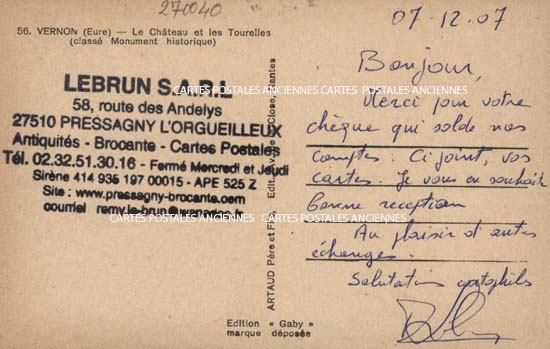 270040
56. VERNON (Eure) — Le Château et les Tourelles
(classé Monument historique)
LEBRUN S.A.R.L
58, route des Andelys
27510 PRESSAGNY L'ORGUEILLEUX
Antiquités - Brocante - Cartes Postales
Tél. 02.32.51.30.16 - Fermé Mercredi et Jeudi
Sirène 414 935 197 00015 - APE 525 Z
Site : www.pressagny-brocante.com
courriel
CARTES POSTALES ANCIENNES CARTES POSTALES ANCIENNES
CARTES POSTALES ANCIENNES
ARTAUD Père et Fils, Edit. Close, Nantes
Edition « Gaby »
marque déposée
07-12-07
Bonjour,
Merci pour votre
chèque qui solde nos
comptes. Ci joint, vos
cartes. Je vous en souhaite
bonne reception
Au plaisir d'autres
échanges.
Salutations cartophiles